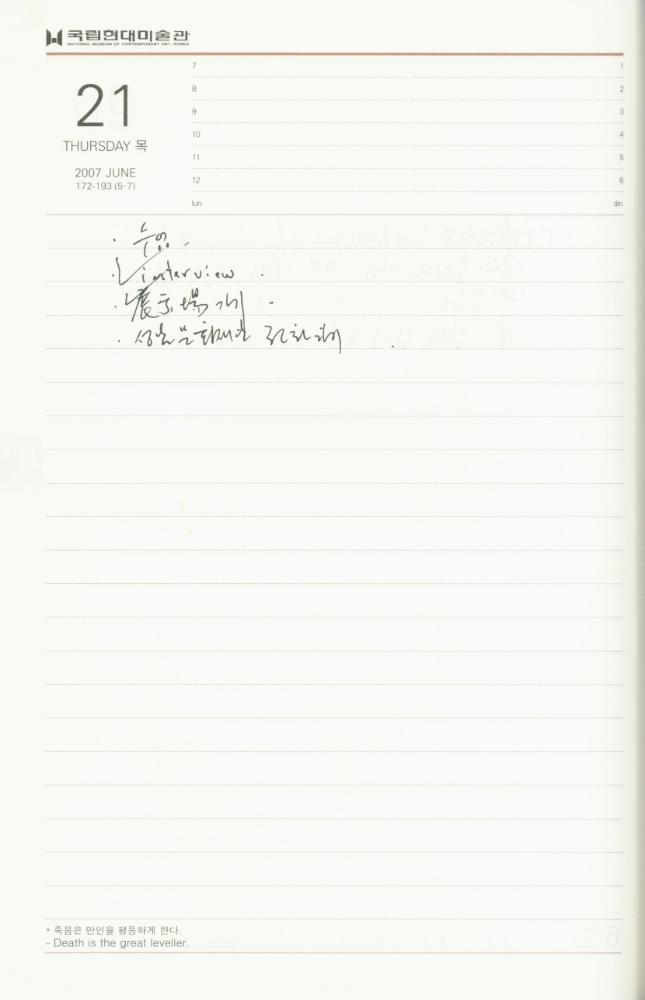 국립현대미술관
NATIONAL MUSEUM OF CONTEMPORARY ART, KOREA
21
THURSDAY 목
2007 JUNE
172-193 (5·7)
7
8
9
10
11
12
lun.
1
2
3
4
5
6
din.
· 수영.
· interview .
· 展示場 개
· 성남문화재단
* 죽음은 만인을 평등하게 한다.
- Death is the great leveller.